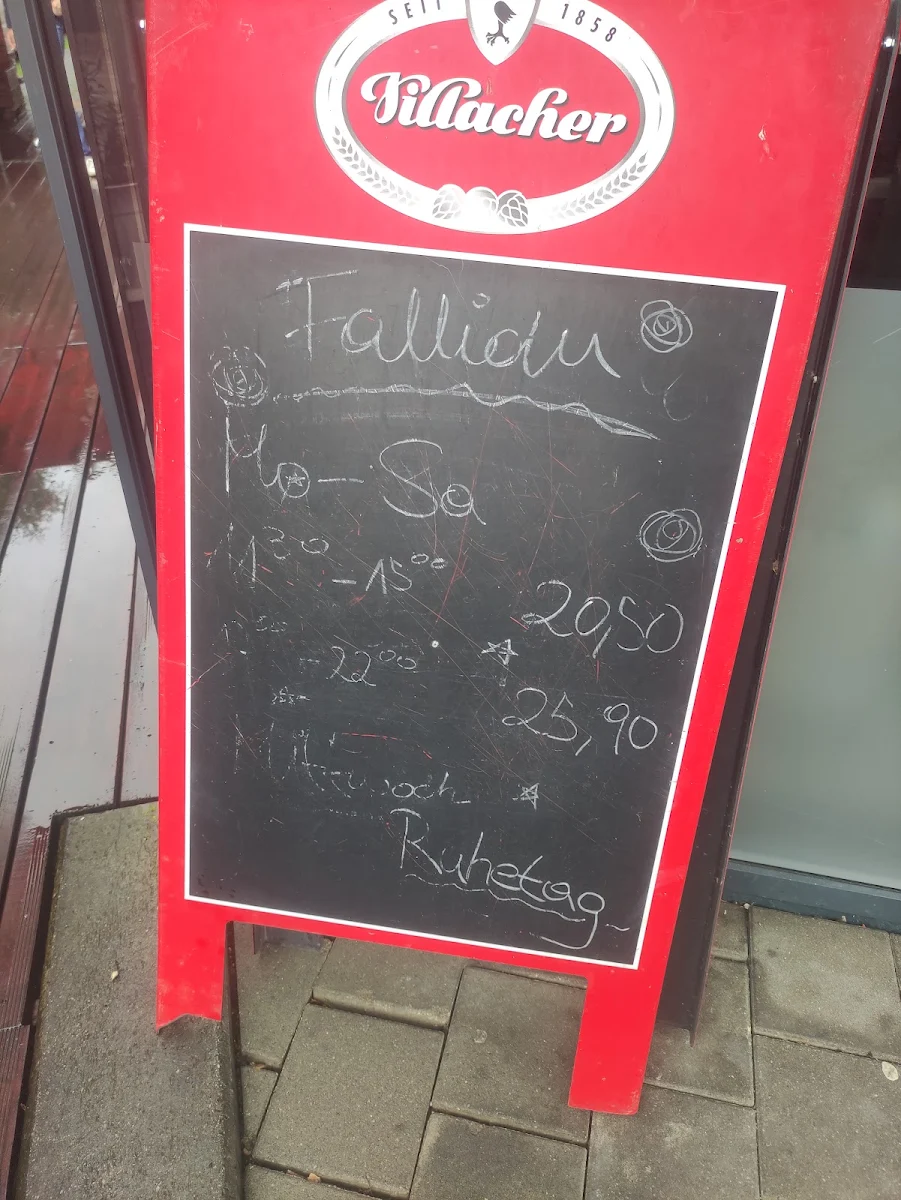 SEIT 1858
Villacher
Fallidu
Mo-Sa
11³⁰ -15⁰⁰
20,50
-22⁰⁰
25,90
Mittwoch
Ruhetag